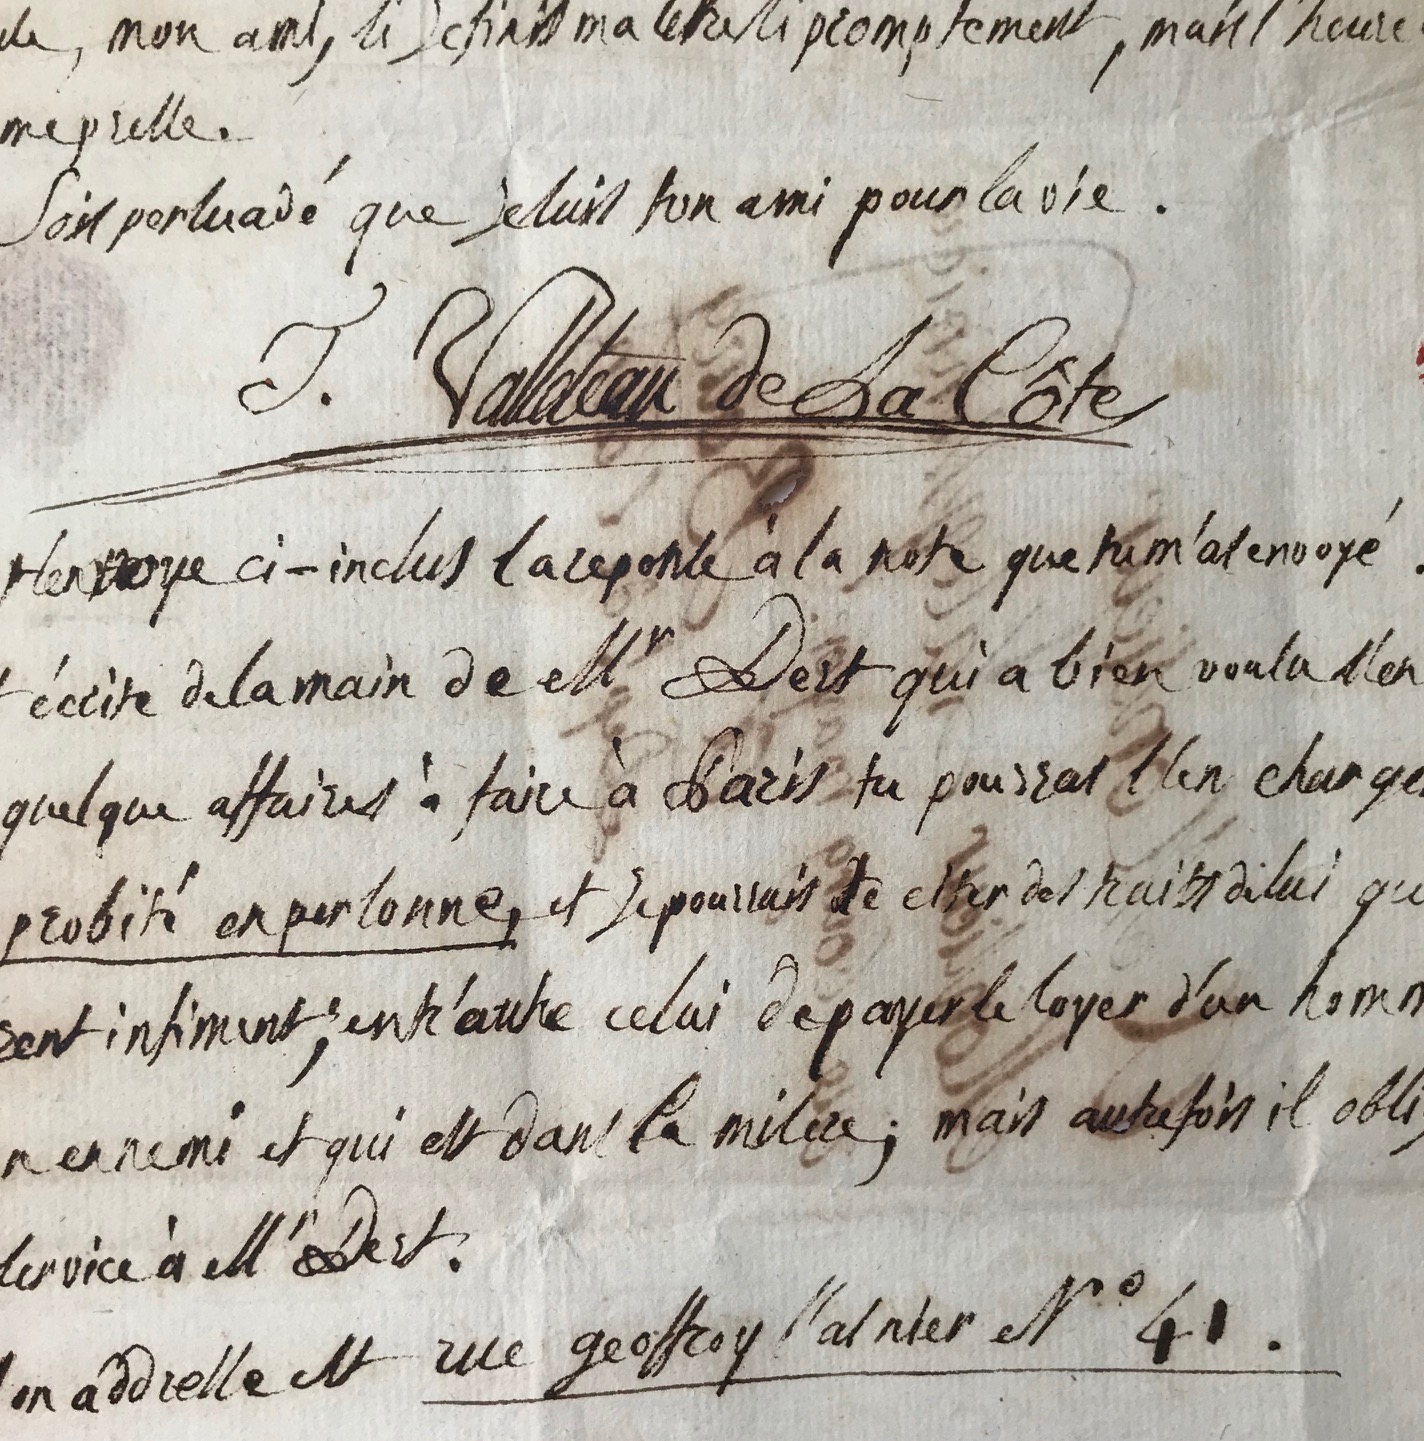 mon ami, si je finis ma lettre si promptement, mais l'heure
me presse.
Sois persuadé que je suis ton ami pour la vie.
J. Valleteau de La Côte
t'envoye ci-inclus la reponse à la note que tu m'as envoyé.
écrite de la main de Mr Dert qui a bien voulu s'en
quelque affaires à faire à Paris tu pourras l'en charger
probité en personne, et je pourrais te citer des traits de lui qu
infiment; entr'autre celui de payer le loyer d'un homm
ennemi et qui est dans la misere; mais autrefois il obli
service à Mr Dert.
son addresse est rue geoffroy l'asnier No 41.